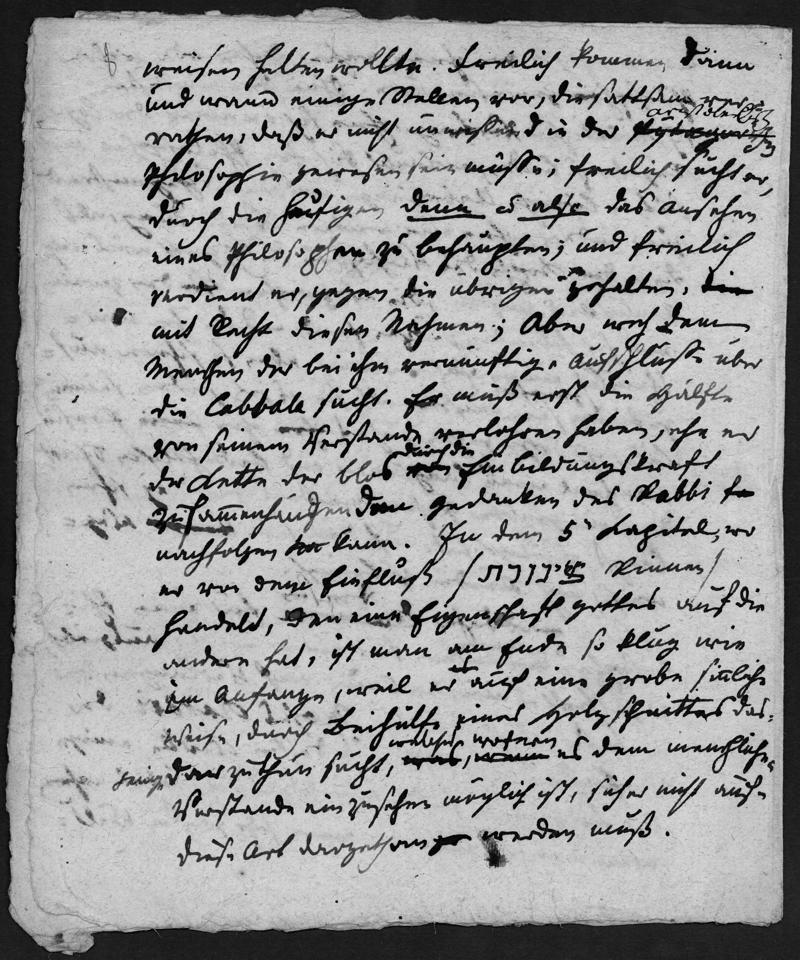 weisen halten wollte. Freilich kommen dann
und wann einige Stellen vor, die sattsam ver-
rathen, daß er nicht unwissend in der aristotelisch
Philosophie gewesen sein müsse; freilich sucht er,
durch die häufigen denn u also das Ansehen
eines Philosophen zu behaupten; und freilich
verdient er, gegen die übrigen gehalten, 
mit Recht diesen Nahmen; Aber weh dem
Menschen der bei ihm vernünftige Aufschlüsse über
die Cabbala sucht. Er muß erst die Hälfte
von seinem Verstande verlohren haben, ehe er
der Kette der blos durch die Einbildungskraft
zusammenhängenden gedanken des Rabbi
nachfolgen kann. In dem 5 Kapitel, wo
er von dem Einfluß / צינורות Rinnen /
handelt, den eine Eigenschaft gottes auf die
andere hat, ist man am Ende so klug wie
im Anfange, weil er auf eine grobe sinliche
Weise, durch Beihülfe eines Holzschnittes das-
jenige darzuthun sucht, welches, wofern es dem menschlichen
Verstande einzusehen möglich ist, sicher nicht auf
diese Art dargethan werden muß.